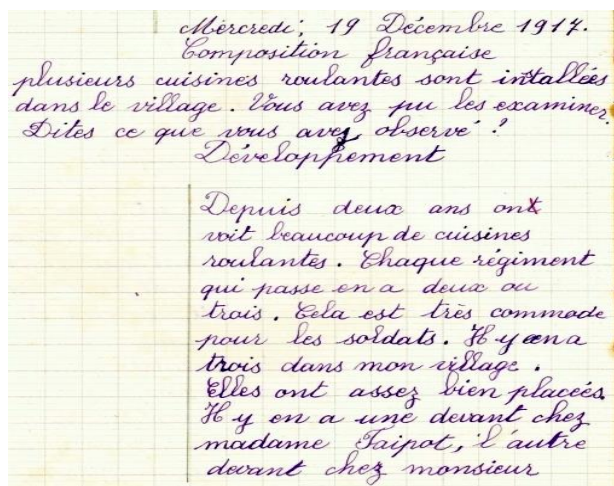 Mercredi; 19 Décembre 1917.
Composition française
plusieurs cuisines roulantes sont intallées
dans le village. Vous avez pu les examiner.
Dites ce que vous avez observé ?
Développement
Depuis deux ans ont
voit beaucoup de cuisines
roulantes. Chaque régiment
qui passe en a deux ou
trois. Cela est très commode
pour les soldats. Il y en a
trois dans mon village.
Elles ont assez bien placées.
Il y en a une devant chez
madame Taipot, l'autre
devant chez monsieur